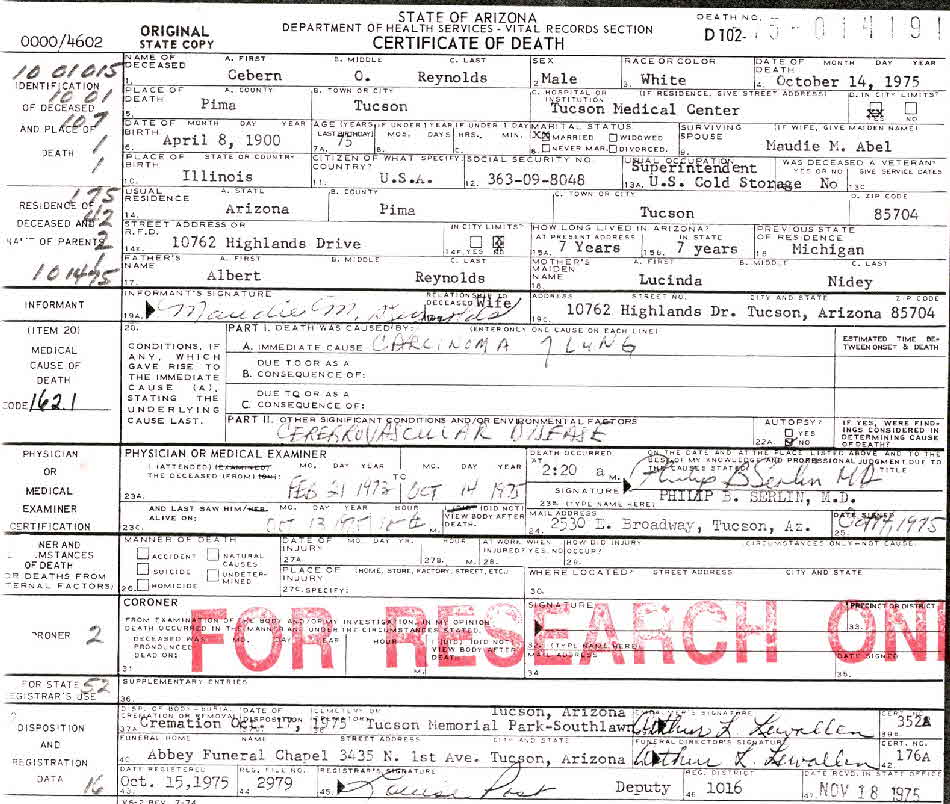 STATE OF ARIZONA
DEPARTMENT OF HEALTH SERVICES - VITAL RECORDS SECTION
CERTIFICATE OF DEATH
0000/4602
ORIGINAL
STATE COPY
DEATH NO.
D 102- 5-014191
10 01015
IDENTIFICATION
1001
OF DECEASED
107
AND PLACE OF
1
DEATH
1
1
NAME OF DECEASED A. FIRST B. MIDDLE C. LAST SEX RACE OR COLOR DATE OF DEATH MONTH DAY YEAR
1. Cebern O. Reynolds 2. Male 3. White 4. October 14, 1975
PLACE OF DEATH A. COUNTY B. TOWN OR CITY C. HOSPITAL OR INSTITUTION (IF RESIDENCE, GIVE STREET ADDRESS) D. IN CITY LIMITS?
5. Pima Tucson Tucson Medical Center XX YES NO
DATE OF BIRTH MONTH DAY YEAR AGE (YEARS LAST BIRTHDAY) IF UNDER 1 YEAR IF UNDER 1 DAY MARITAL STATUS SURVIVING SPOUSE (IF WIFE, GIVE MAIDEN NAME)
MOS. DAYS HRS. MIN. XX MARRIED WIDOWED
6. April 8, 1900 7A. 75 B. C. 8. NEVER MAR. DIVORCED. 9. Maudie M. Abel
PLACE OF BIRTH STATE OR COUNTRY CITIZEN OF WHAT COUNTRY? SPECIFY SOCIAL SECURITY NO. USUAL OCCUPATION WAS DECEASED A VETERAN?
YES OR NO GIVE SERVICE DATES
10. Illinois 11. U.S.A. 12. 363-09-8048 13A. Superintendent U.S. Cold Storage No 13C
175
RESIDENCE OF
42
DECEASED AND
2
NAME OF PARENTS
1
101475
USUAL RESIDENCE A. STATE B. COUNTY C. TOWN OR CITY D. ZIP CODE
14. Arizona Pima Tucson 85704
STREET ADDRESS OR R.F.D. IN CITY LIMITS? HOW LONG LIVED IN ARIZONA? PREVIOUS STATE OF RESIDENCE
AT PRESENT ADDRESS IN STATE
14E. 10762 Highlands Drive 14F. YES NO 15A. 7 Years 15B. 7 years 16 Michigan
FATHER'S NAME A. FIRST B. MIDDLE C. LAST MOTHER'S MAIDEN NAME A. FIRST B. MIDDLE C. LAST
17. Albert Reynolds 18. Lucinda Nidey
INFORMANT
INFORMANT'S SIGNATURE RELATIONSHIP TO DECEASED Wife ADDRESS STREET NO. CITY AND STATE ZIP CODE
19A. Maudie M. Reynolds 19C. 10762 Highlands Dr. Tucson, Arizona 85704
(ITEM 20)
MEDICAL
CAUSE OF
DEATH
CODE 162.1
20.
CONDITIONS, IF
ANY, WHICH
GAVE RISE TO
THE IMMEDIATE
CAUSE (A),
STATING THE
UNDERLYING
CAUSE LAST.
PART I. DEATH WAS CAUSED BY: (ENTER ONLY ONE CAUSE ON EACH LINE) ESTIMATED TIME BETWEEN ONSET & DEATH
A. IMMEDIATE CAUSE CARCINOMA LUNG
DUE TO OR AS A
B. CONSEQUENCE OF:
DUE TO OR AS A
C. CONSEQUENCE OF:
PART II. OTHER SIGNIFICANT CONDITIONS AND/OR ENVIRONMENTAL FACTORS AUTOPSY? IF YES, WERE FINDINGS CONSIDERED IN DETERMINING CAUSE OF DEATH?
CEREBROVASCULAR DISEASE YES
22A. NO
PHYSICIAN
OR
MEDICAL
EXAMINER
CERTIFICATION
PHYSICIAN OR MEDICAL EXAMINER
I (ATTENDED) (EXAMINED) MO. DAY YEAR TO MO. DAY YEAR
THE DECEASED (FROM)
23A. FEB 21 1973 OCT 14 1975
AND LAST SAW HIM/HER ALIVE ON: MO. DAY YEAR HOUR (DID NOT) VIEW BODY AFTER DEATH.
23C. OCT 13 1975 M.
DEATH OCCURRED AT ON THE DATE AND AT THE PLACE LISTED ABOVE AND TO THE BEST OF MY KNOWLEDGE AND PROFESSIONAL JUDGMENT DUE TO THE CAUSES STATED TITLE
2:20 a. M.
SIGNATURE Philip B Serlin MD
23B. (TYPE NAME HERE) PHILIP B. SERLIN, M.D.
MAIL ADDRESS DATE SIGNED
24. 2530 E. Broadway, Tucson, Az. 25.
NER AND
MSTANCES
OF DEATH
OR DEATHS FROM
TERNAL FACTORS)
MANNER OF DEATH
ACCIDENT NATURAL CAUSES
SUICIDE UNDETERMINED
26. HOMICIDE
DATE OF INJURY MO. DAY YR. HOUR AT WORK WHEN INJURED? YES, NO HOW DID INJURY OCCUR? CIRCUMSTANCES ONLY - NOT CAUSE.
27A. 27B. M. 28. 29.
PLACE OF INJURY (HOME, STORE, FACTORY, STREET, ETC.) WHERE LOCATED? STREET ADDRESS CITY AND STATE
27C. SPECIFY: 30.
PRONER 2
CORONER
FROM EXAMINATION OF THE BODY AND/OR MY INVESTIGATION, IN MY OPINION
DEATH OCCURRED IN THE MANNER AND UNDER THE CIRCUMSTANCES STATED.
DECEASED WAS PRONOUNCED DEAD ON: MO. DAY YEAR HOUR (DID) (DID NOT) VIEW BODY AFTER DEATH
31. M.
SIGNATURE PRECINCT OR DISTRICT
33.
32. (TYPE NAME HERE)
MAIL ADDRESS DATE SIGNED
34 35.
FOR RESEARCH ONL
FOR STATE 52
REGISTRAR'S USE
SUPPLEMENTARY ENTRIES
36.
DISPOSITION
AND
REGISTRATION
DATA 16
DISP. OF BODY - BURIAL, CREMATION OR REMOVAL DATE OF DISPOSITION CEMETERY OR CREMATORY Tucson, Arizona EMBALMER'S SIGNATURE CERT. NO.
37A. Cremation Oct. 17, 1975 Tucson Memorial Park-Southlawn Arthur L Lewallen 39B. 352A
FUNERAL HOME NAME STREET ADDRESS CITY AND STATE FUNERAL DIRECTOR'S SIGNATURE CERT. NO.
40. Abbey Funeral Chapel 3435 N. 1st Ave. Tucson, Arizona Arthur L. Lewallen 42. 176A
DATE REGISTERED REG. FILE NO. REGISTRAR'S SIGNATURE REG. DISTRICT DATE RCVD. IN STATE OFFICE
43. Oct. 15,1975 44 2979 45. Louise Post Deputy 46 1016 47. NOV 18 1975
VS-2 REV. 7-74